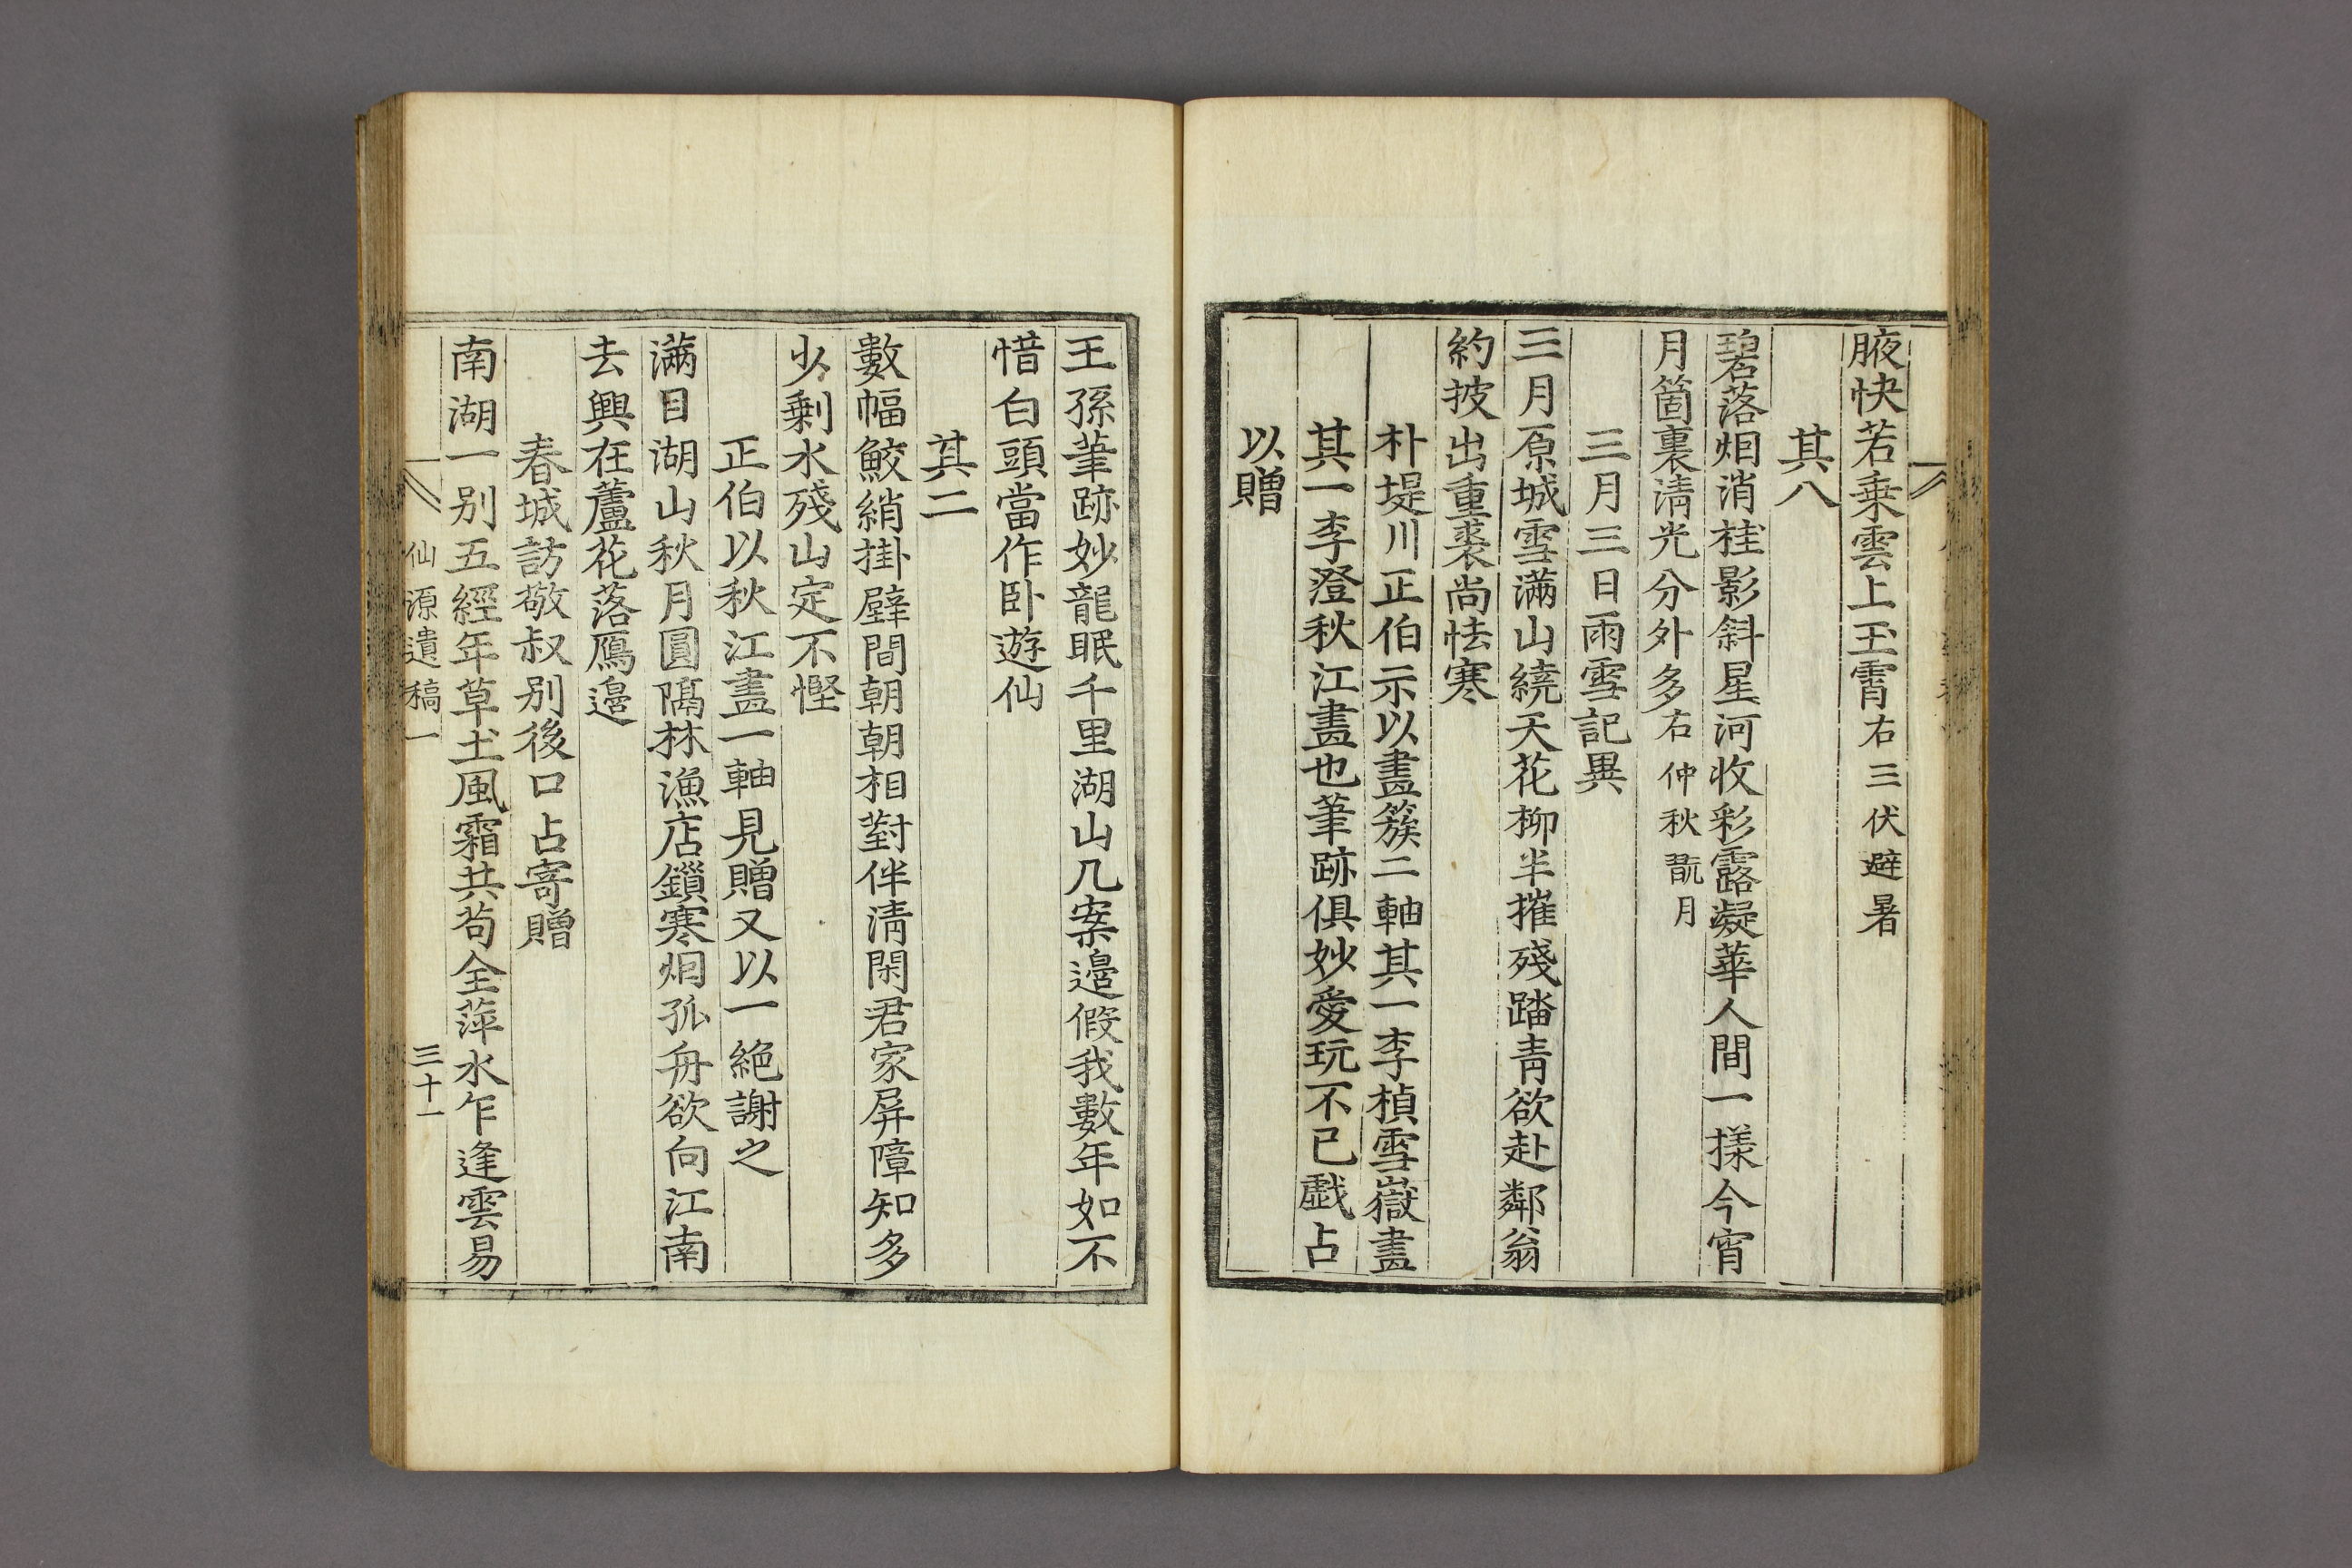 腋快若乗雲上玉霄右三伏避暑
其八
碧落烟消桂影斜星河收彩露凝華人間一㨾今宵
月箇裏淸光分外多右仲秋翫月
三月三日雨雪記異
三月原城雪滿山繞天花柳半摧殘踏靑欲赴鄰翁
約披出重裘尚怯寒
朴堤川正伯示以畵簇二軸其一李楨雪嶽畵
其一李澄秋江畵也筆跡俱妙愛玩不已戱占
以贈
王孫筆跡妙龍眠千里湖山几案邉假我數年如不
惜白頭當作卧遊仙
其二
數幅鮫綃掛壁間朝朝相對伴淸閑君家屛障知多
少剩水殘山定不慳
正伯以秋江畵一軸見贈又以一絶謝之
滿目湖山秋月圓隔林漁店鎖寒烟孤舟欲向江南
去興在蘆花落鴈邉
春城訪敬叔别後口占寄贈
南湖一别五經年草土風霜共苟全萍水乍逢雲易
仙源遺稿一
三十一